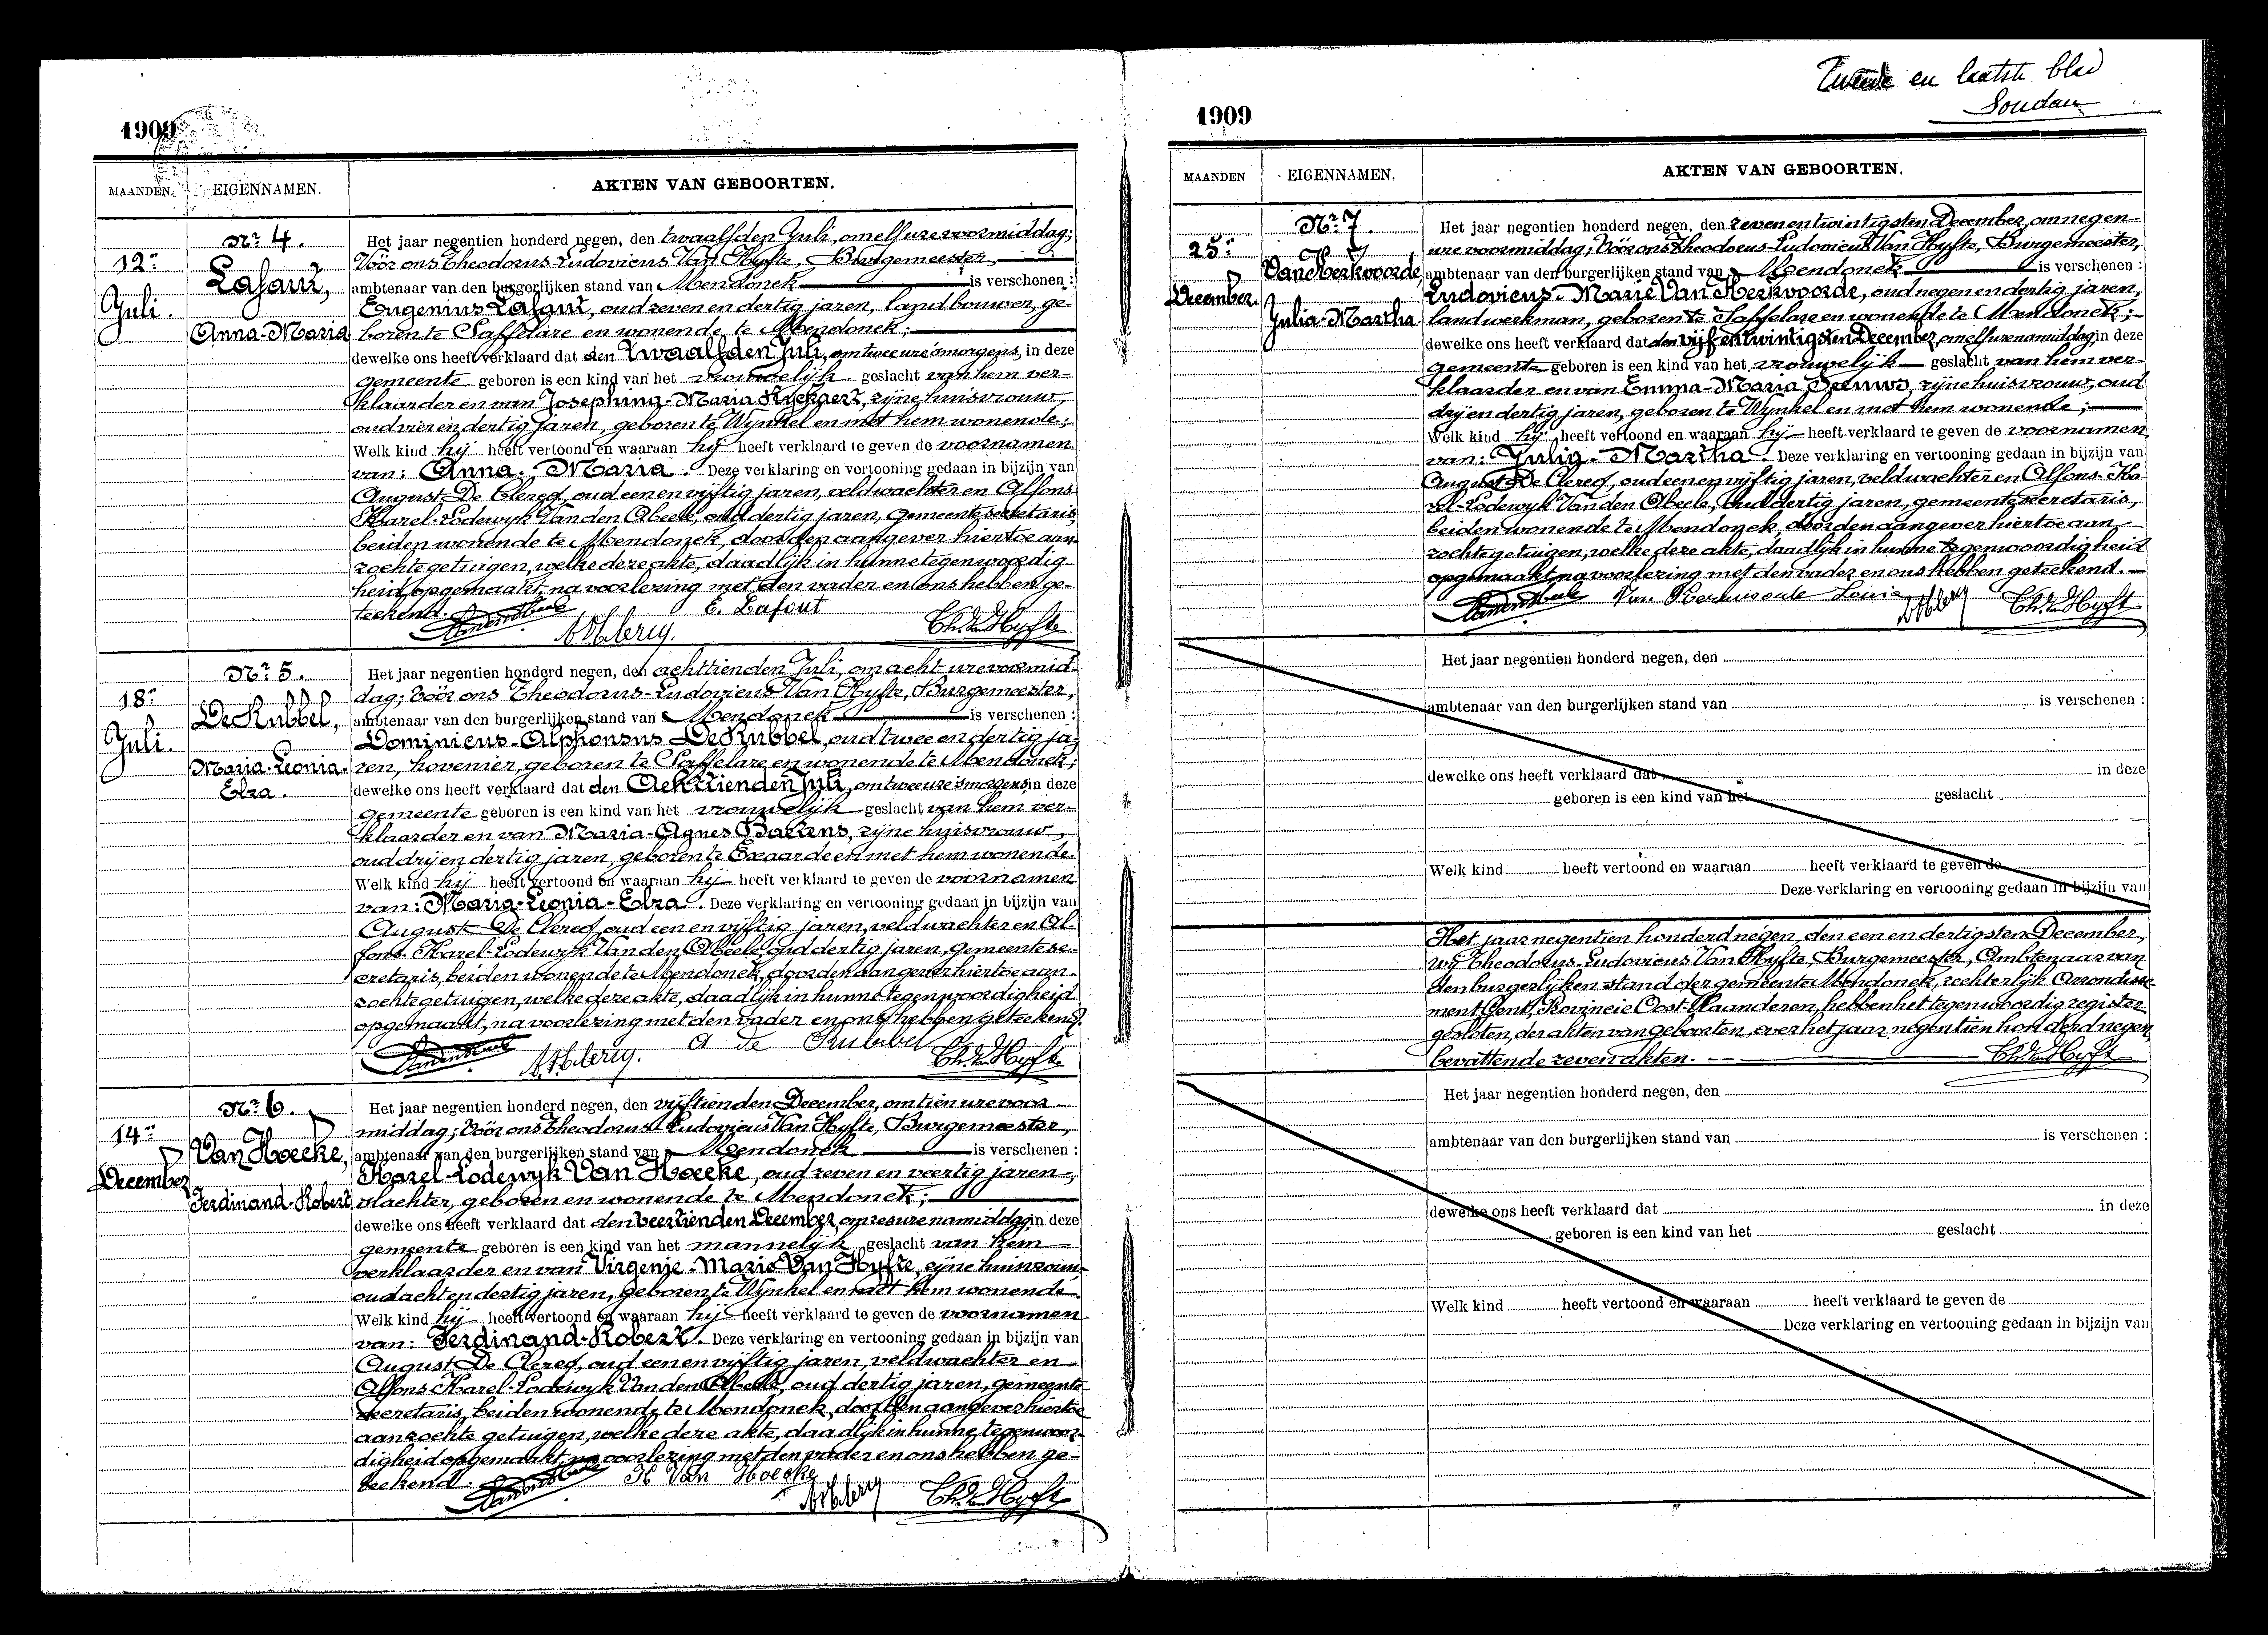 1909
MAANDEN. EIGENNAMEN. AKTEN VAN GEBOORTEN.
Nr 4.
12n
Juli.
Lafaut,
Anna-Maria
Het jaar negentien honderd negen, den twaalfden Juli, om elf ure voormiddag;
Vóór ons Theodorus-Ludovicus Van Hyfte, Burgemeester,
ambtenaar van den burgerlijken stand van Mendonck is verschenen :
Eugenius Lafaut, oud zeven en dertig jaren, landbouwer, ge-
boren te Saffelare en wonende te Mendonck;
dewelke ons heeft verklaard dat den twaalfden Juli, om twee ure 's morgens, in deze
gemeente geboren is een kind van het vrouwelijk geslacht van hem ver-
klaarder en van Josephina-Maria Ryckaert, zijne huisvrouw,
oud vier en dertig jaren, geboren te Wynkel en met hem wonende;
Welk kind hij heeft vertoond en waaraan hij heeft verklaard te geven de voornamen
van: Anna-Maria. Deze verklaring en vertooning gedaan in bijzijn van
August De Clercq, oud een en vijftig jaren, veldwachter en Alfons-
Karel-Lodewyk Van den Abeele, oud dertig jaren, gemeentesecretaris,
beiden wonende te Mendonck, door den aangever hiertoe aan-
zochte getuigen, welke deze akte, daadlijk in hunne tegenwoordig-
heid opgemaakt, na voorlezing met den vader en ons hebben ge-
teekend.
E. Lafout
Nr 5.
18n
Juli.
De Rubbel,
Maria-Leonia-
Elza.
Het jaar negentien honderd negen, den achttienden Juli, om acht ure voormid-
dag; Vóór ons Theodorus-Ludovicus Van Hyfte, Burgemeester,
ambtenaar van den burgerlijken stand van Mendonck is verschenen :
Dominicus-Alphonsus De Rubbel, oud twee en dertig ja-
ren, hovenier, geboren te Saffelare en wonende te Mendonck;
dewelke ons heeft verklaard dat den Achttienden Juli, om twee ure 's morgens, in deze
gemeente geboren is een kind van het vrouwelijk geslacht van hem ver-
klaarder en van Maria-Agnes Baetens, zijne huisvrouw,
oud drij en dertig jaren, geboren te Exaarde en met hem wonende.
Welk kind hij heeft vertoond en waaraan hij heeft verklaard te geven de voornamen
van: Maria-Leonia-Elza. Deze verklaring en vertooning gedaan in bijzijn van
August De Clercq, oud een en vijftig jaren, veldwachter en Al-
fons-Karel-Lodewyk Van den Abeele, oud dertig jaren, gemeentese-
cretaris, beiden wonende te Mendonck, door den aangever hiertoe aan-
zochte getuigen, welke deze akte, daadlijk in hunne tegenwoordigheid
opgemaakt, na voorlezing met den vader en ons hebben geteekend.
A de Rubbel
Nr 6.
14n
December
Van Hoecke,
Ferdinand-Robert
Het jaar negentien honderd negen, den vijftienden December, om tien ure voor-
middag; Vóór ons Theodorus Ludovicus Van Hyfte, Burgemeester,
ambtenaar van den burgerlijken stand van Mendonck is verschenen :
Karel-Lodewyk Van Hoecke, oud zeven en veertig jaren,
slachter, geboren en wonende te Mendonck;
dewelke ons heeft verklaard dat den veertienden December, om zes ure namiddag, in deze
gemeente geboren is een kind van het mannelijk geslacht van hem
verklaarder en van Virgenie-Marie Van Hyfte, zijne huisvrouw,
oud acht en dertig jaren, geboren te Wynkel en met hem wonende
Welk kind hij heeft vertoond en waaraan hij heeft verklaard te geven de voornamen
van: Ferdinand-Robert. Deze verklaring en vertooning gedaan in bijzijn van
August De Clercq, oud een en vijftig jaren, veldwachter en
Alfons-Karel-Lodewyk Van den Abeele, oud dertig jaren, gemeente-
secretaris, beiden wonende te Mendonck, door den aangever hiertoe
aanzochte getuigen, welke deze akte, daadlijk in hunne tegenwoor-
digheid opgemaakt, na voorlezing met den vader en ons hebben ge-
teekend.
K Van Hoecke
Tweede en laatste blad
Soudan
1909
MAANDEN EIGENNAMEN. AKTEN VAN GEBOORTEN.
Nr 7.
25n
December.
Van Kerkvoorde,
Julia-Martha.
Het jaar negentien honderd negen, den zeven en twintigsten December, om negen
ure voormiddag; Vóór ons Theodorus-Ludovicus Van Hyfte, Burgemeester,
ambtenaar van den burgerlijken stand van Mendonck is verschenen :
Ludovicus-Marie Van Kerkvoorde, oud negen en dertig jaren,
landwerkman, geboren te Saffelare en wonende te Mendonck;
dewelke ons heeft verklaard dat den vijf en twintigsten December, om elf ure namiddag, in deze
gemeente geboren is een kind van het vrouwelijk geslacht van hem ver-
klaarder en van Emma-Maria Seeuws, zijne huisvrouw, oud
drij en dertig jaren, geboren te Wynkel en met hem wonende;
Welk kind hij heeft vertoond en waaraan hij heeft verklaard te geven de voornamen
van: Julia-Martha. Deze verklaring en vertooning gedaan in bijzijn van
August De Clercq, oud een en vijftig jaren, veldwachter en Alfons-Ka-
rel-Lodewyk Van den Abeele, oud dertig jaren, gemeentesecretaris,
beiden wonende te Mendonck, door den aangever hiertoe aan-
zochte getuigen, welke deze akte, daadlijk in hunne tegenwoordigheid
opgemaakt, na voorlezing met den vader en ons hebben geteekend.
Het jaar negentien honderd negen, den
ambtenaar van den burgerlijken stand van is verschenen :
dewelke ons heeft verklaard dat in deze
geboren is een kind van het geslacht
Welk kind heeft vertoond en waaraan heeft verklaard te geven de
Deze verklaring en vertooning gedaan in bijzijn van
Het jaar negentien honderd negen, den een en dertigsten December,
wij Theodorus-Ludovicus Van Hyfte, Burgemeester, Ambtenaar van
den burgerlijken stand der gemeente Mendonck, rechterlijk Arrondisse-
ment Gent, Provincie Oost-Vlaanderen, hebben het tegenwoordig register
gesloten, der akten van geboorten, over het jaar negentien honderd negen,
bevattende zeven akten.
Het jaar negentien honderd negen, den
ambtenaar van den burgerlijken stand van is verschenen :
dewelke ons heeft verklaard dat in deze
geboren is een kind van het geslacht
Welk kind heeft vertoond en waaraan heeft verklaard te geven de
Deze verklaring en vertooning gedaan in bijzijn van